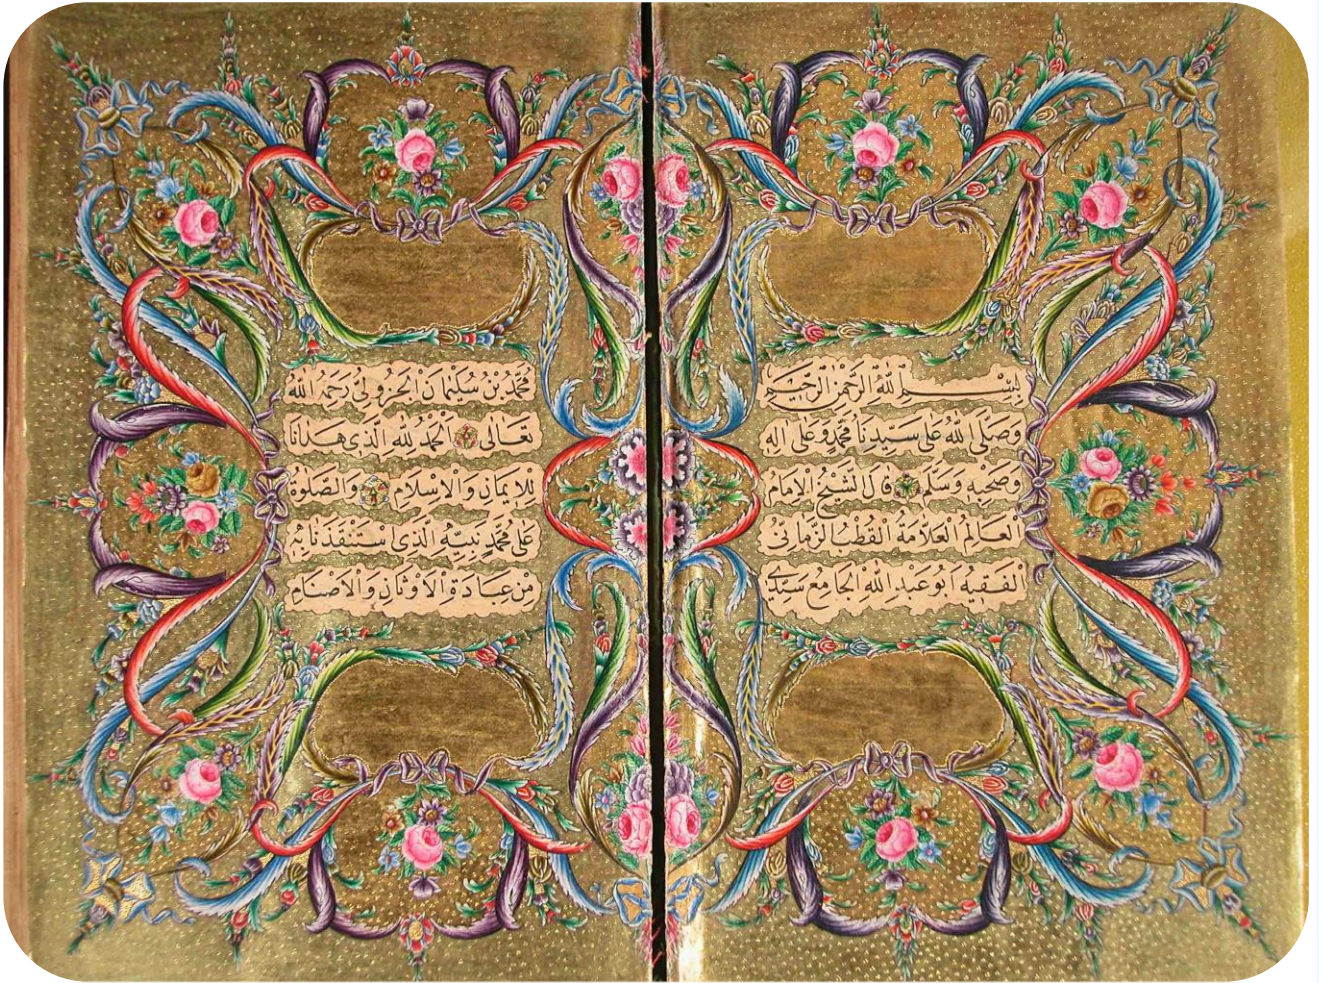 بِسْمِ اللّٰهِ الرَّحْمٰنِ الرَّحِيمِ
وَصَلَّى اللّٰهُ عَلَى سَيِّدِنَا مُحَمَّدٍ وَعَلَى اٰلِهِ
وَصَحْبِهِ وَسَلَّمَ قَالَ الشَّيْخُ الْاِمَامُ
الْعَالِمُ الْعَلَّامَةُ الْقُطْبُ الزَّمَانِيُّ
الْفَقِيهُ اَبُو عَبْدِ اللّٰهِ الْجَامِعُ سَيِّدِي
مُحَمَّدُ بْنُ سُلَيْمَانَ الْجَزُولِيُّ رَحِمَهُ اللّٰهُ
تَعَالَى اَلْحَمْدُ لِلّٰهِ الَّذِي هَدَانَا
لِلْاِيمَانِ وَالْاِسْلَامِ وَالصَّلٰوةُ
عَلَى مُحَمَّدٍ نَبِيِّهِ الَّذِي اسْتَنْقَذَنَا بِهِ
مِنْ عِبَادَةِ الْاَوْثَانِ وَالْاَصْنَامِ